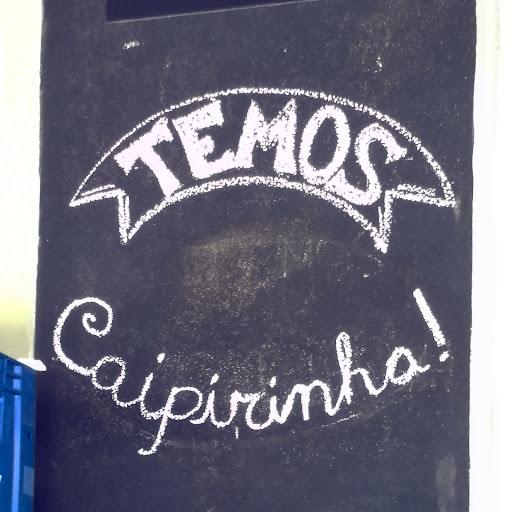 TEMOS
Caipirinha!